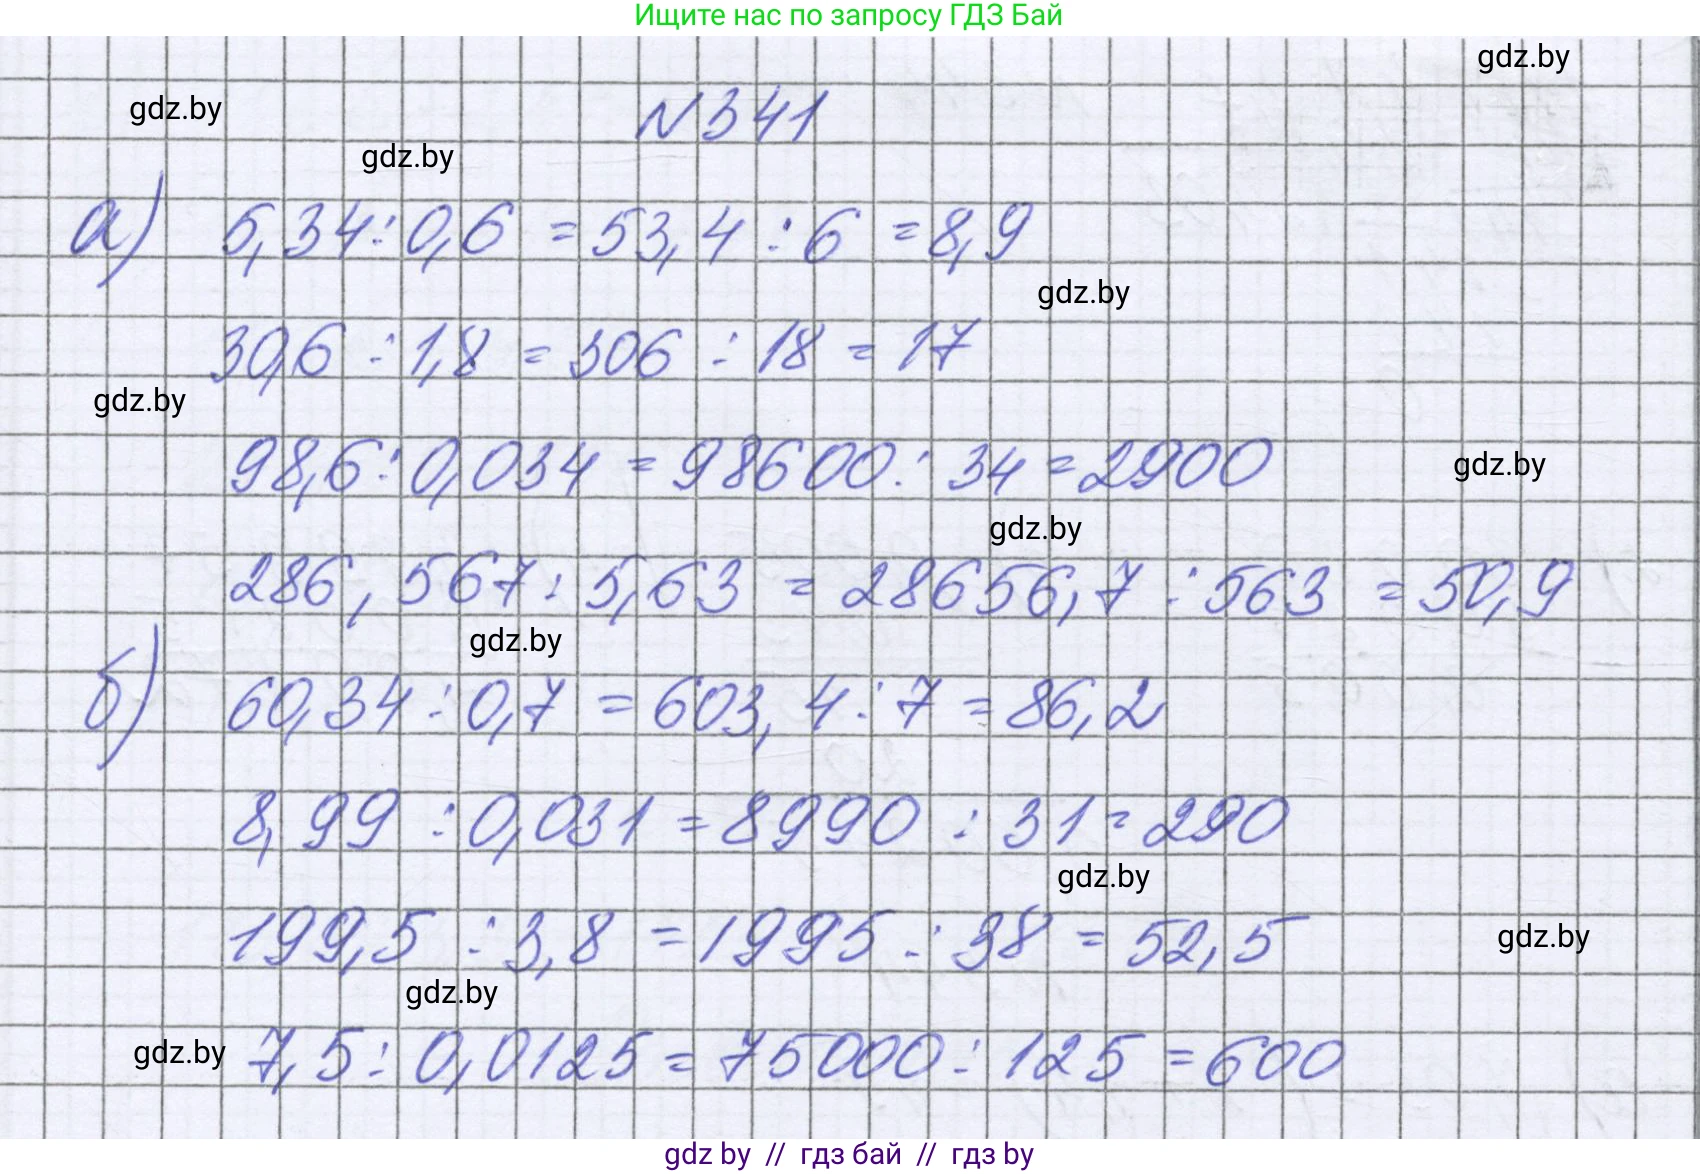 Ищите нас по запросу ГДЗ Бай
gdz.by
gdz.by
N341
gdz.by
а) 5,34:0,6 = 53,4:6 = 8,9
gdz.by
30,6:1,8 = 306:18 = 17
gdz.by
98,6:0,034 = 98600:34 = 2900
gdz.by
gdz.by
286,567:5,63 = 28656,7:563 = 50,9
gdz.by
б) 60,34:0,7 = 603,4:7 = 86,2
8,99:0,031 = 8990:31 = 290
gdz.by
199,5:3,8 = 1995:38 = 52,5
gdz.by
gdz.by
gdz.by
7,5:0,0125 = 75000:125 = 600
gdz by // гдз бай // гдз by